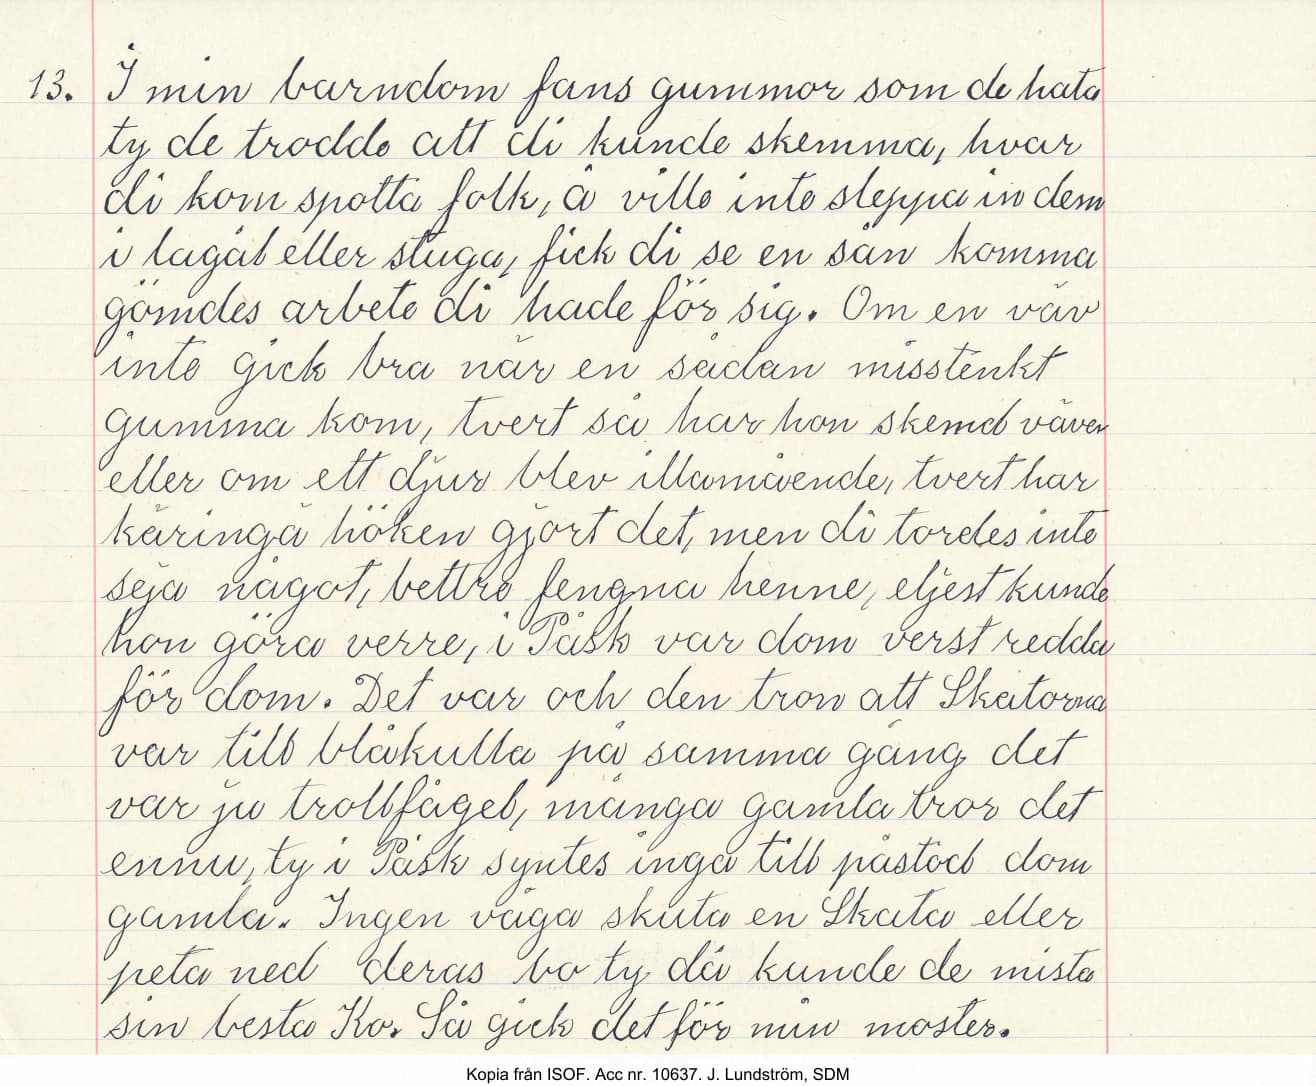 13. I min barndom fans gummor som de hata
ty de trodde att di kunde skemma, hvar
di kom spotta folk, å ville inte sleppa in dem
i lagål eller stuga, fick di se en sån komma
gömdes arbete di hade för sig. Om en väv
inte gick bra när en sådan misstenkt
gumma kom, tvert så har hon skemd väven
eller om ett djur blev illamående, tvert har
käringä höken gjort det, men di tordes inte
seja något, bettre fengna henne, eljest kunde
hon göra verre, i Påsk var dom verst redda
för dom. Det var och den tron att Skatorna
var till blåkulla på samma gång det
var ju trollfågel, många gamla tror det
ennu, ty i Påsk syntes inga till påstod dom
gamla. Ingen våga skuta en Skata eller
peta ned deras bo ty då kunde de mista
sin besta Ko. Så gick det för min moster.
Kopia från ISOF. Acc nr. 10637. J. Lundström, SDM